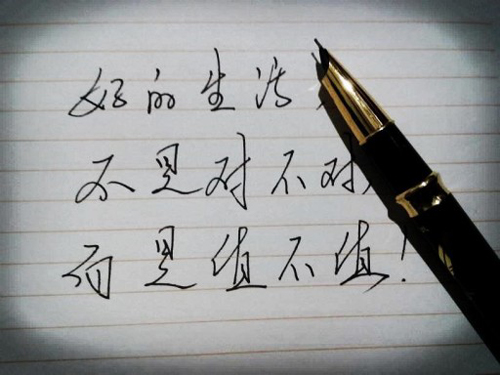 好的生活,
不是对不对,
而是值不值!